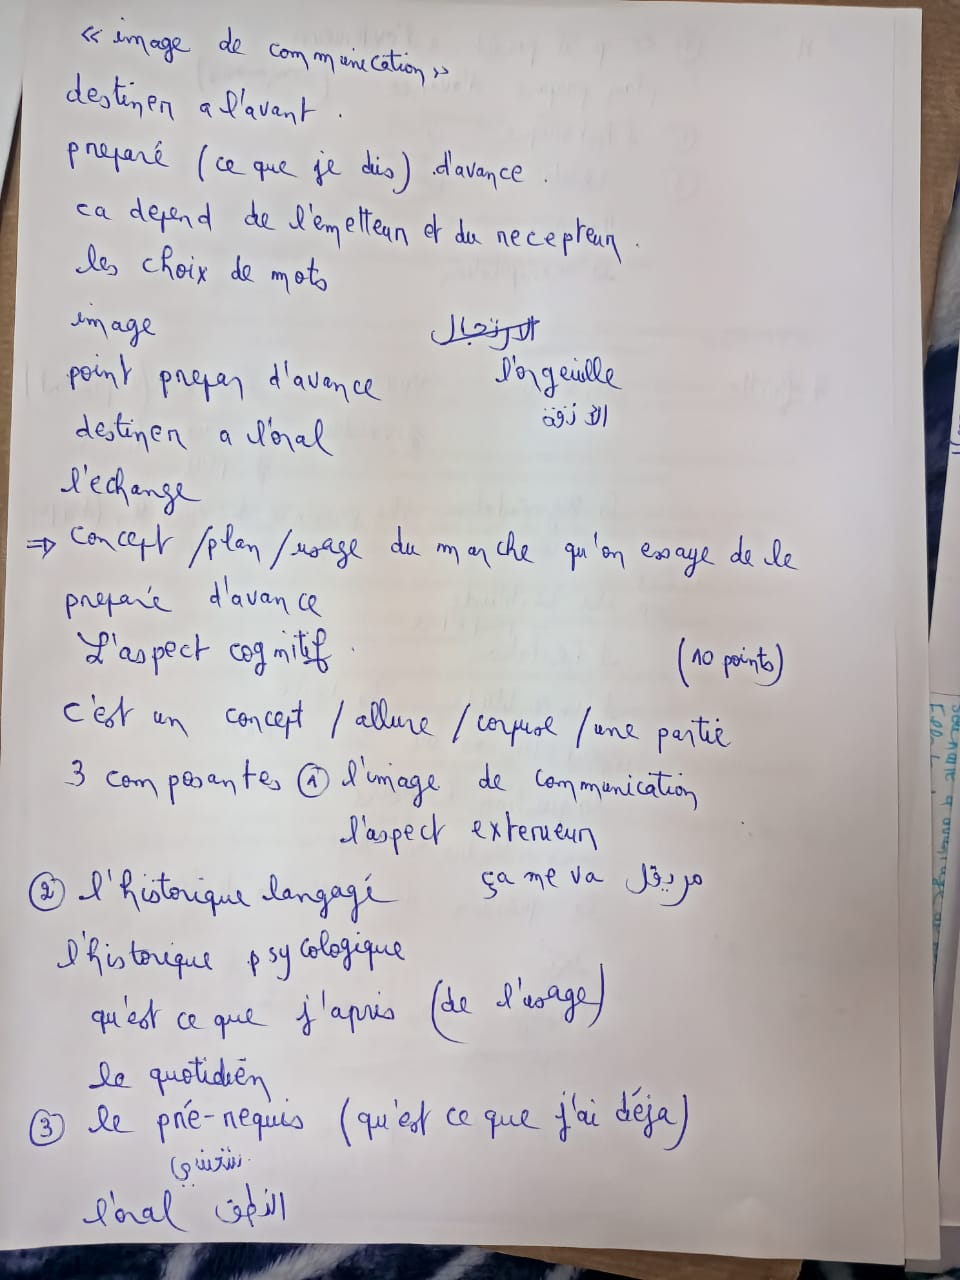 « image de communication »
destiner a l'avant .
preparé (ce que je dis) d'avance .
ca depend de l'emetteur et du recepteur .
les choix de mots
image الارتجال
point prepar d'avance l'orgeuille
destiner a l'oral
l'echange
⇒ concept /plan/usage du marche qu'on essaye de le
preparé d'avance
L'aspect cognitif . (10 points)
c'est un concept / allure / corpuse / une partie
3 composantes ① l'image de communication
l'aspect exterieur
② l'historique langagé ça me va
l'historique psycologique
qu'est ce que j'apris (de l'usage)
le quotidien
③ le pré-requis (qu'est ce que j'ai déja)
l'oral النطق